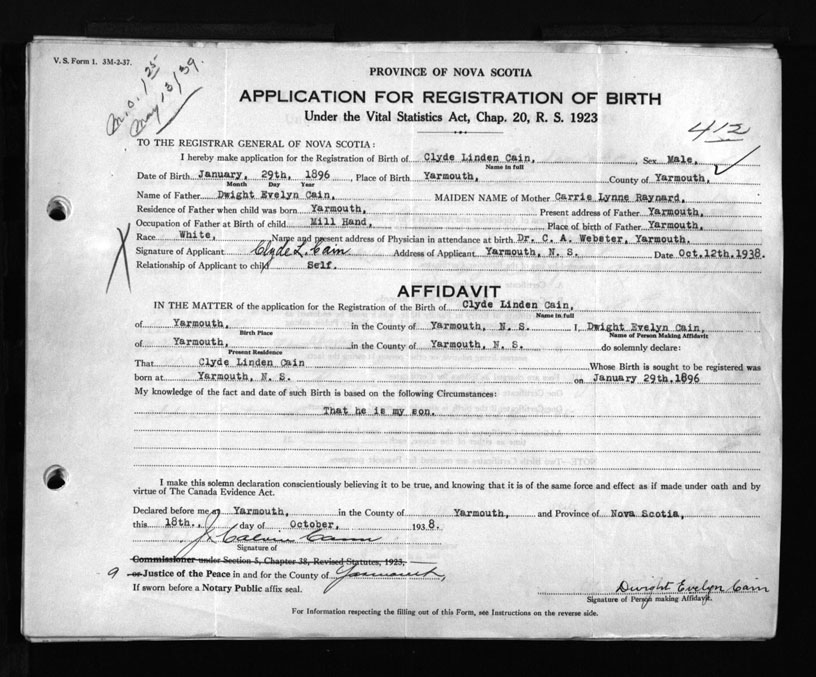 V. S. Form 1. 3M-2-37.
M.O. 1.25
May 13/39.
PROVINCE OF NOVA SCOTIA
APPLICATION FOR REGISTRATION OF BIRTH
Under the Vital Statistics Act, Chap. 20, R. S. 1923
412
TO THE REGISTRAR GENERAL OF NOVA SCOTIA:
I hereby make application for the Registration of Birth of Clyde Linden Cain, Sex Male,
Name in full
Date of Birth January, 29th, 1896, Place of Birth Yarmouth, County of Yarmouth,
Month Day Year
Name of Father Dwight Evelyn Cain, MAIDEN NAME of Mother Carrie Lynne Raynard,
Residence of Father when child was born Yarmouth, Present address of Father Yarmouth,
Occupation of Father at Birth of child Mill Hand, Place of birth of Father Yarmouth,
Race White, Name and present address of Physician in attendance at birth Dr. C. A. Webster, Yarmouth.
Signature of Applicant Clyde L. Cain Address of Applicant Yarmouth, N. S. Date Oct.12th.1938.
Relationship of Applicant to child Self.
AFFIDAVIT
IN THE MATTER of the application for the Registration of the Birth of Clyde Linden Cain,
Name in full
of Yarmouth, in the County of Yarmouth, N. S. I, Dwight Evelyn Cain,
Birth Place Name of Person Making Affidavit
of Yarmouth, in the County of Yarmouth, N. S. do solemnly declare:
Present Residence
That Clyde Linden Cain Whose Birth is sought to be registered was
born at Yarmouth, N. S. on January 29th.1896
My knowledge of the fact and date of such Birth is based on the following Circumstances:
That he is my son.
I make this solemn declaration conscientiously believing it to be true, and knowing that it is of the same force and effect as if made under oath and by
virtue of The Canada Evidence Act.
Declared before me Yarmouth, in the County of Yarmouth, and Province of Nova Scotia,
this 18th., day of October, 1938.
J. Calvin Cann
Signature of
Commissioner under Section 5, Chapter 38, Revised Statutes, 1923,
a or Justice of the Peace in and for the County of Yarmouth,
If sworn before a Notary Public affix seal.
Dwight Evelyn Cain
Signature of Person making Affidavit.
For Information respecting the filling out of this Form, see Instructions on the reverse side.